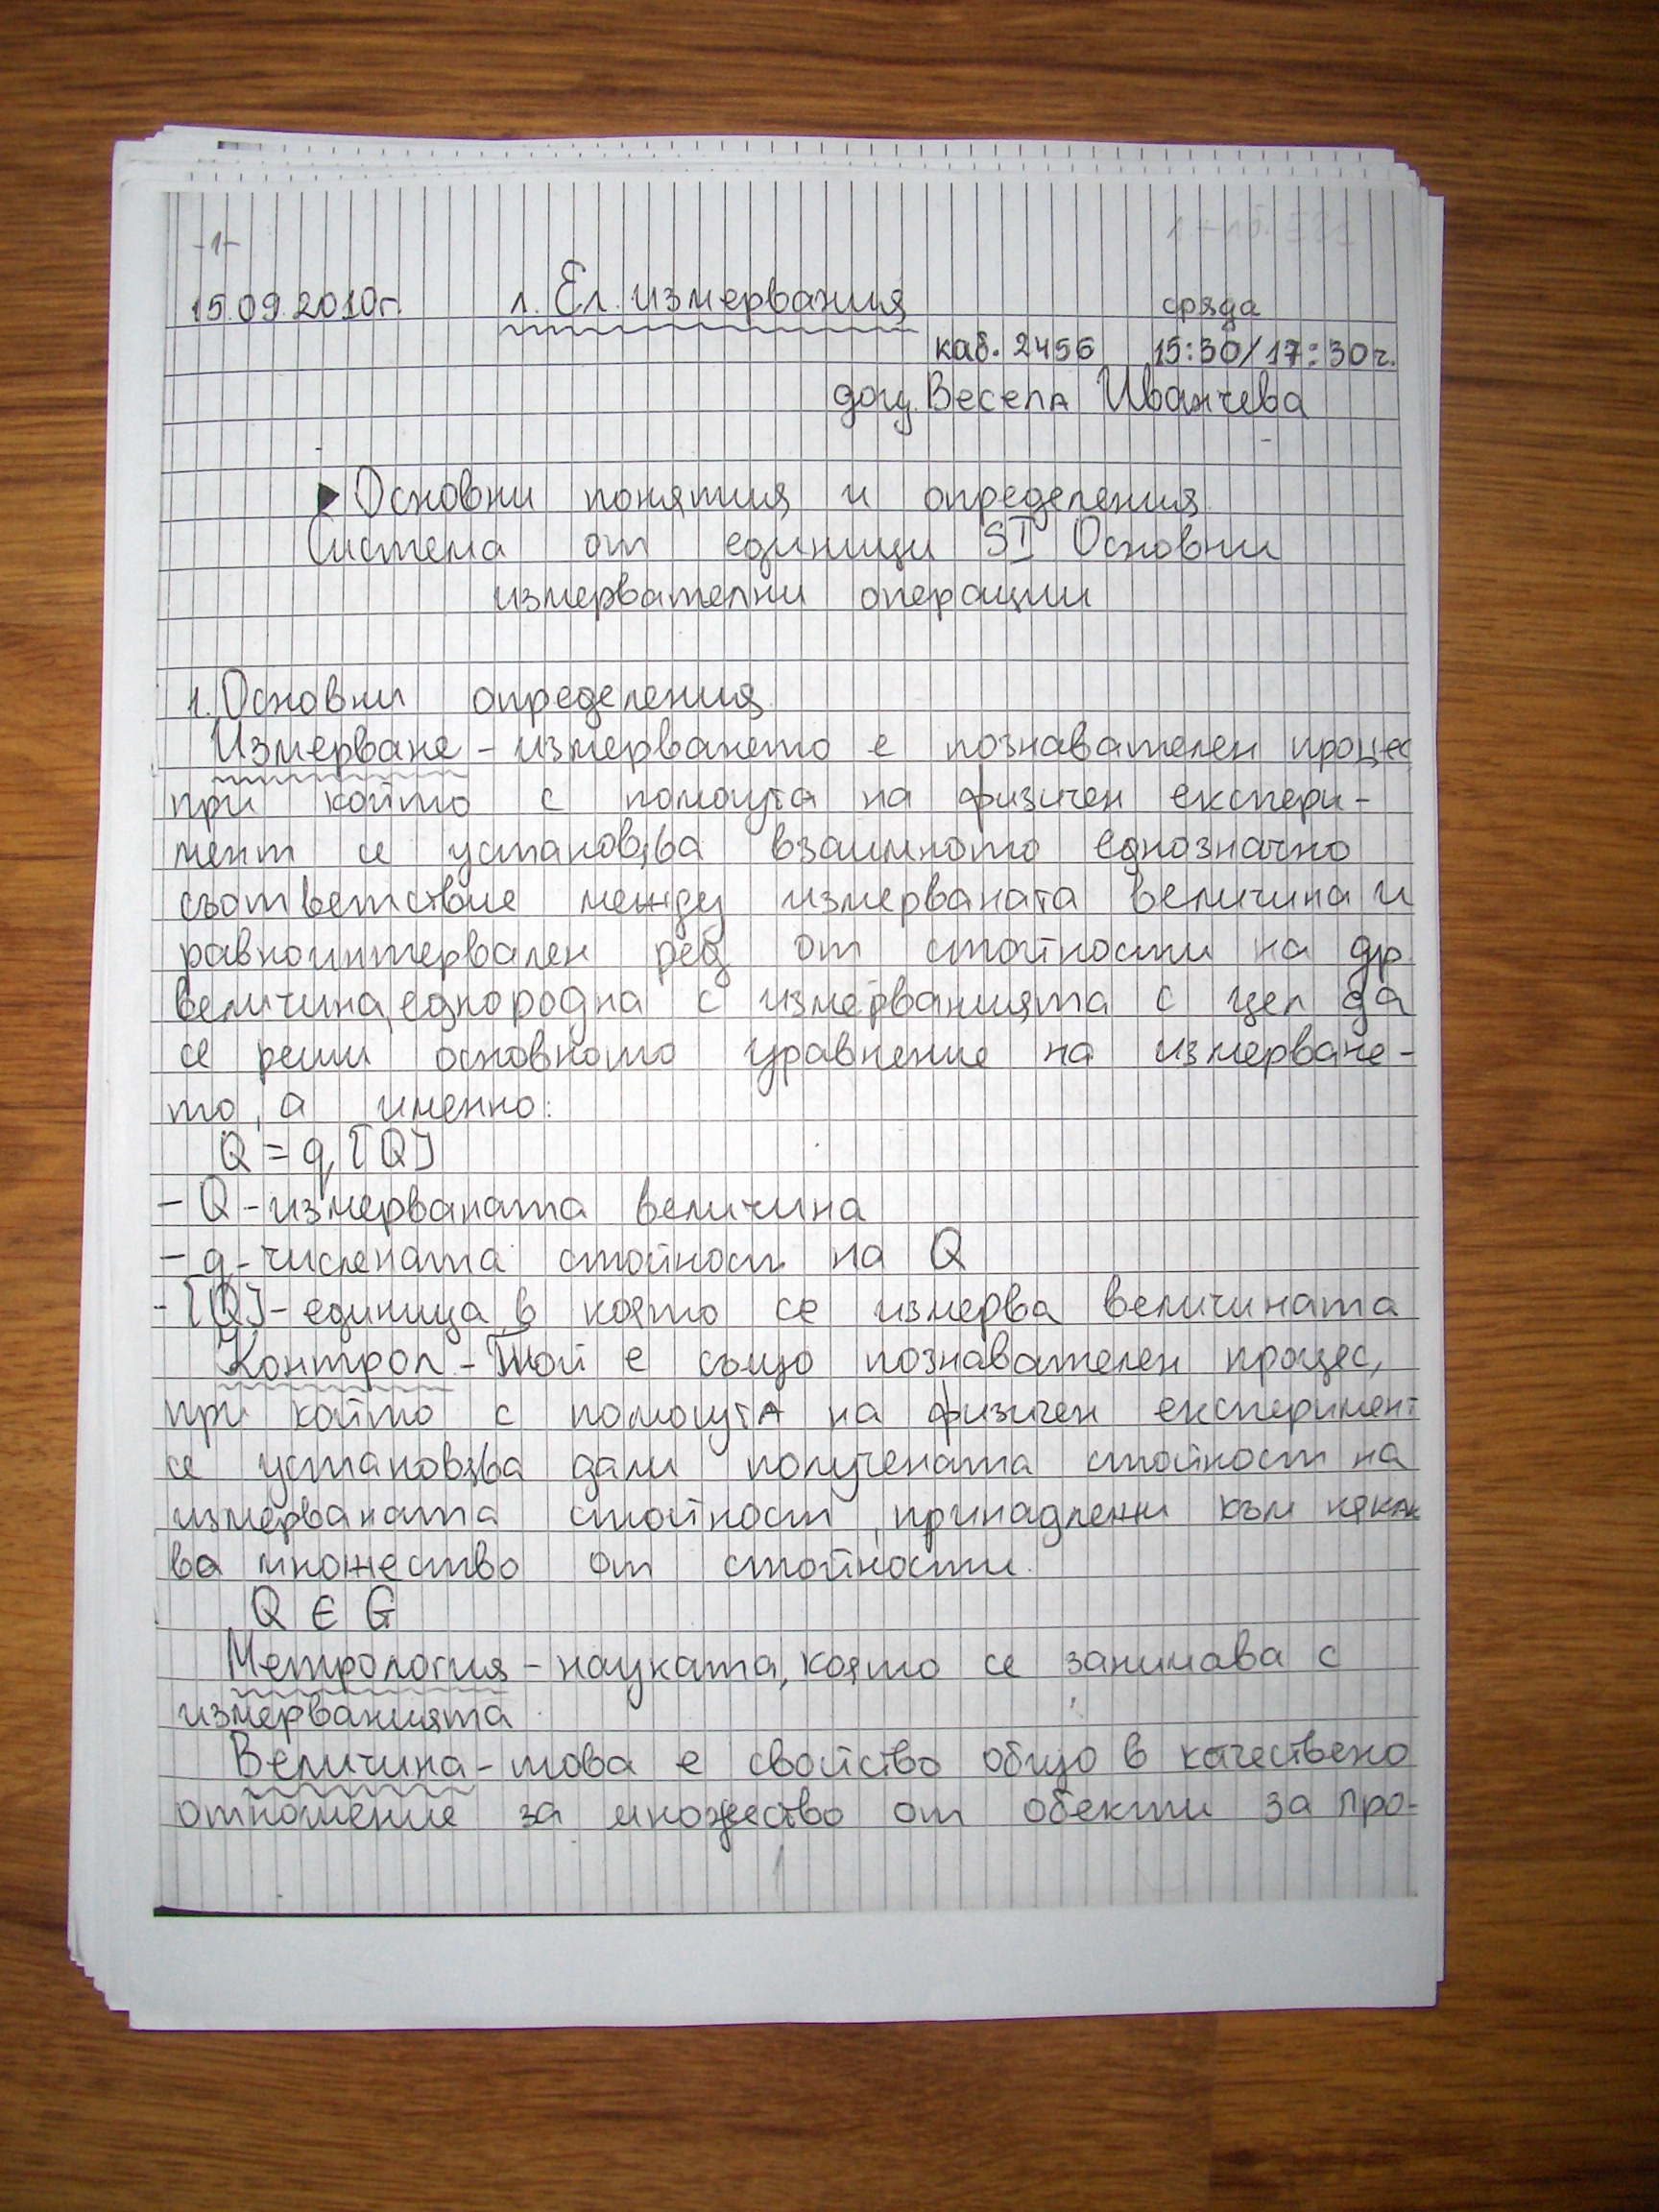 -1-
15.09.2010г. л. Ел. измервания сряда
каб. 2456 15:30/17:30ч.
доц. Весела Иванчева
Основни понятия и определения
Система от единици SI Основни
измервателни операции
1. Основни определения
Измерване - измерването е познавателен процес
при който с помощта на физичен експери-
мент се установява взаимното еднозначно
съответствие между измерваната величина и
равноинтервален ред от стойности на др.
величина, еднородна с измерванията с цел да
се реши основното уравнение на измерване-
то, а именно:
Q = q.[Q]
- Q - измерваната величина
- q - числената стойност на Q
- [Q] - единица в която се измерва величината
Контрол - Той е също познавателен процес,
при който с помощта на физичен експеримент
се установява дали получената стойност на
измерваната стойност, принадлежи към няка
ва множество от стойности.
Q ∈ G
Метрология - науката, която се занимава с
измерванията
Величина - това е свойство общо в качествено
отношение за множество от обекти за про-
1